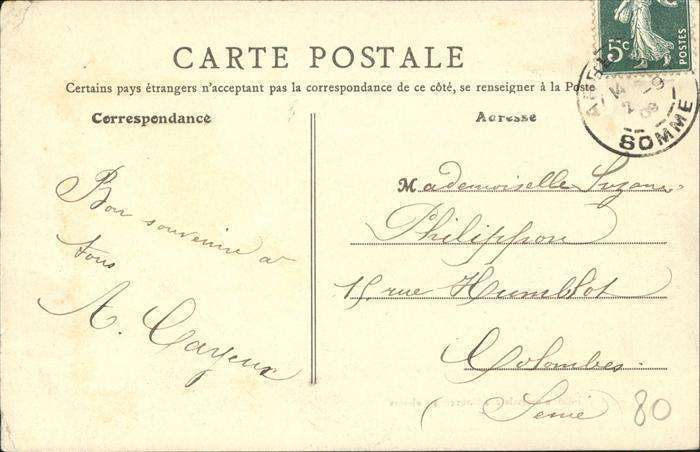 CARTE POSTALE
Certains pays étrangers n'acceptant pas la correspondance de ce côté, se renseigner à la Poste
Correspondance
Adresse
5c
POSTES
SOMME
Bon souvenire a
tous
A. Cayeux
Mademoiselle Suzanne
Philippon
15 rue Humblot
Colombes
(Seine)
80